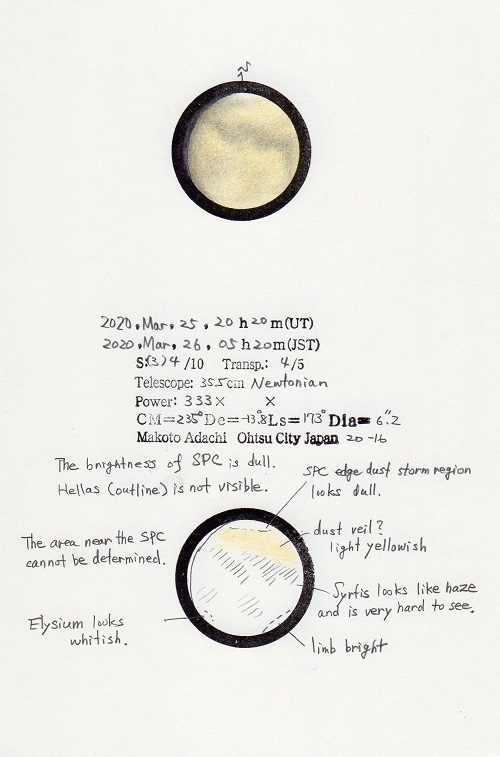 N
2020, Mar, 25, 20 h 20 m (UT)
2020, Mar, 26, 05 h 20 m (JST)
S:(3) 4 /10 Transp.: 4/5
Telescope: 35.5cm Newtonian
Power: 333× ×
CM=235° De=-13.°8 Ls=173° Dia= 6".2
Makoto Adachi Ohtsu City Japan 20-16
The brightness of SPC is dull.
Hellas (outline) is not visible.
SPC edge dust storm region
looks dull.
The area near the SPC
cannot be determined.
dust veil?
light yellowish
Syrtis looks like haze
and is very hard to see.
Elysium looks
whitish.
limb bright